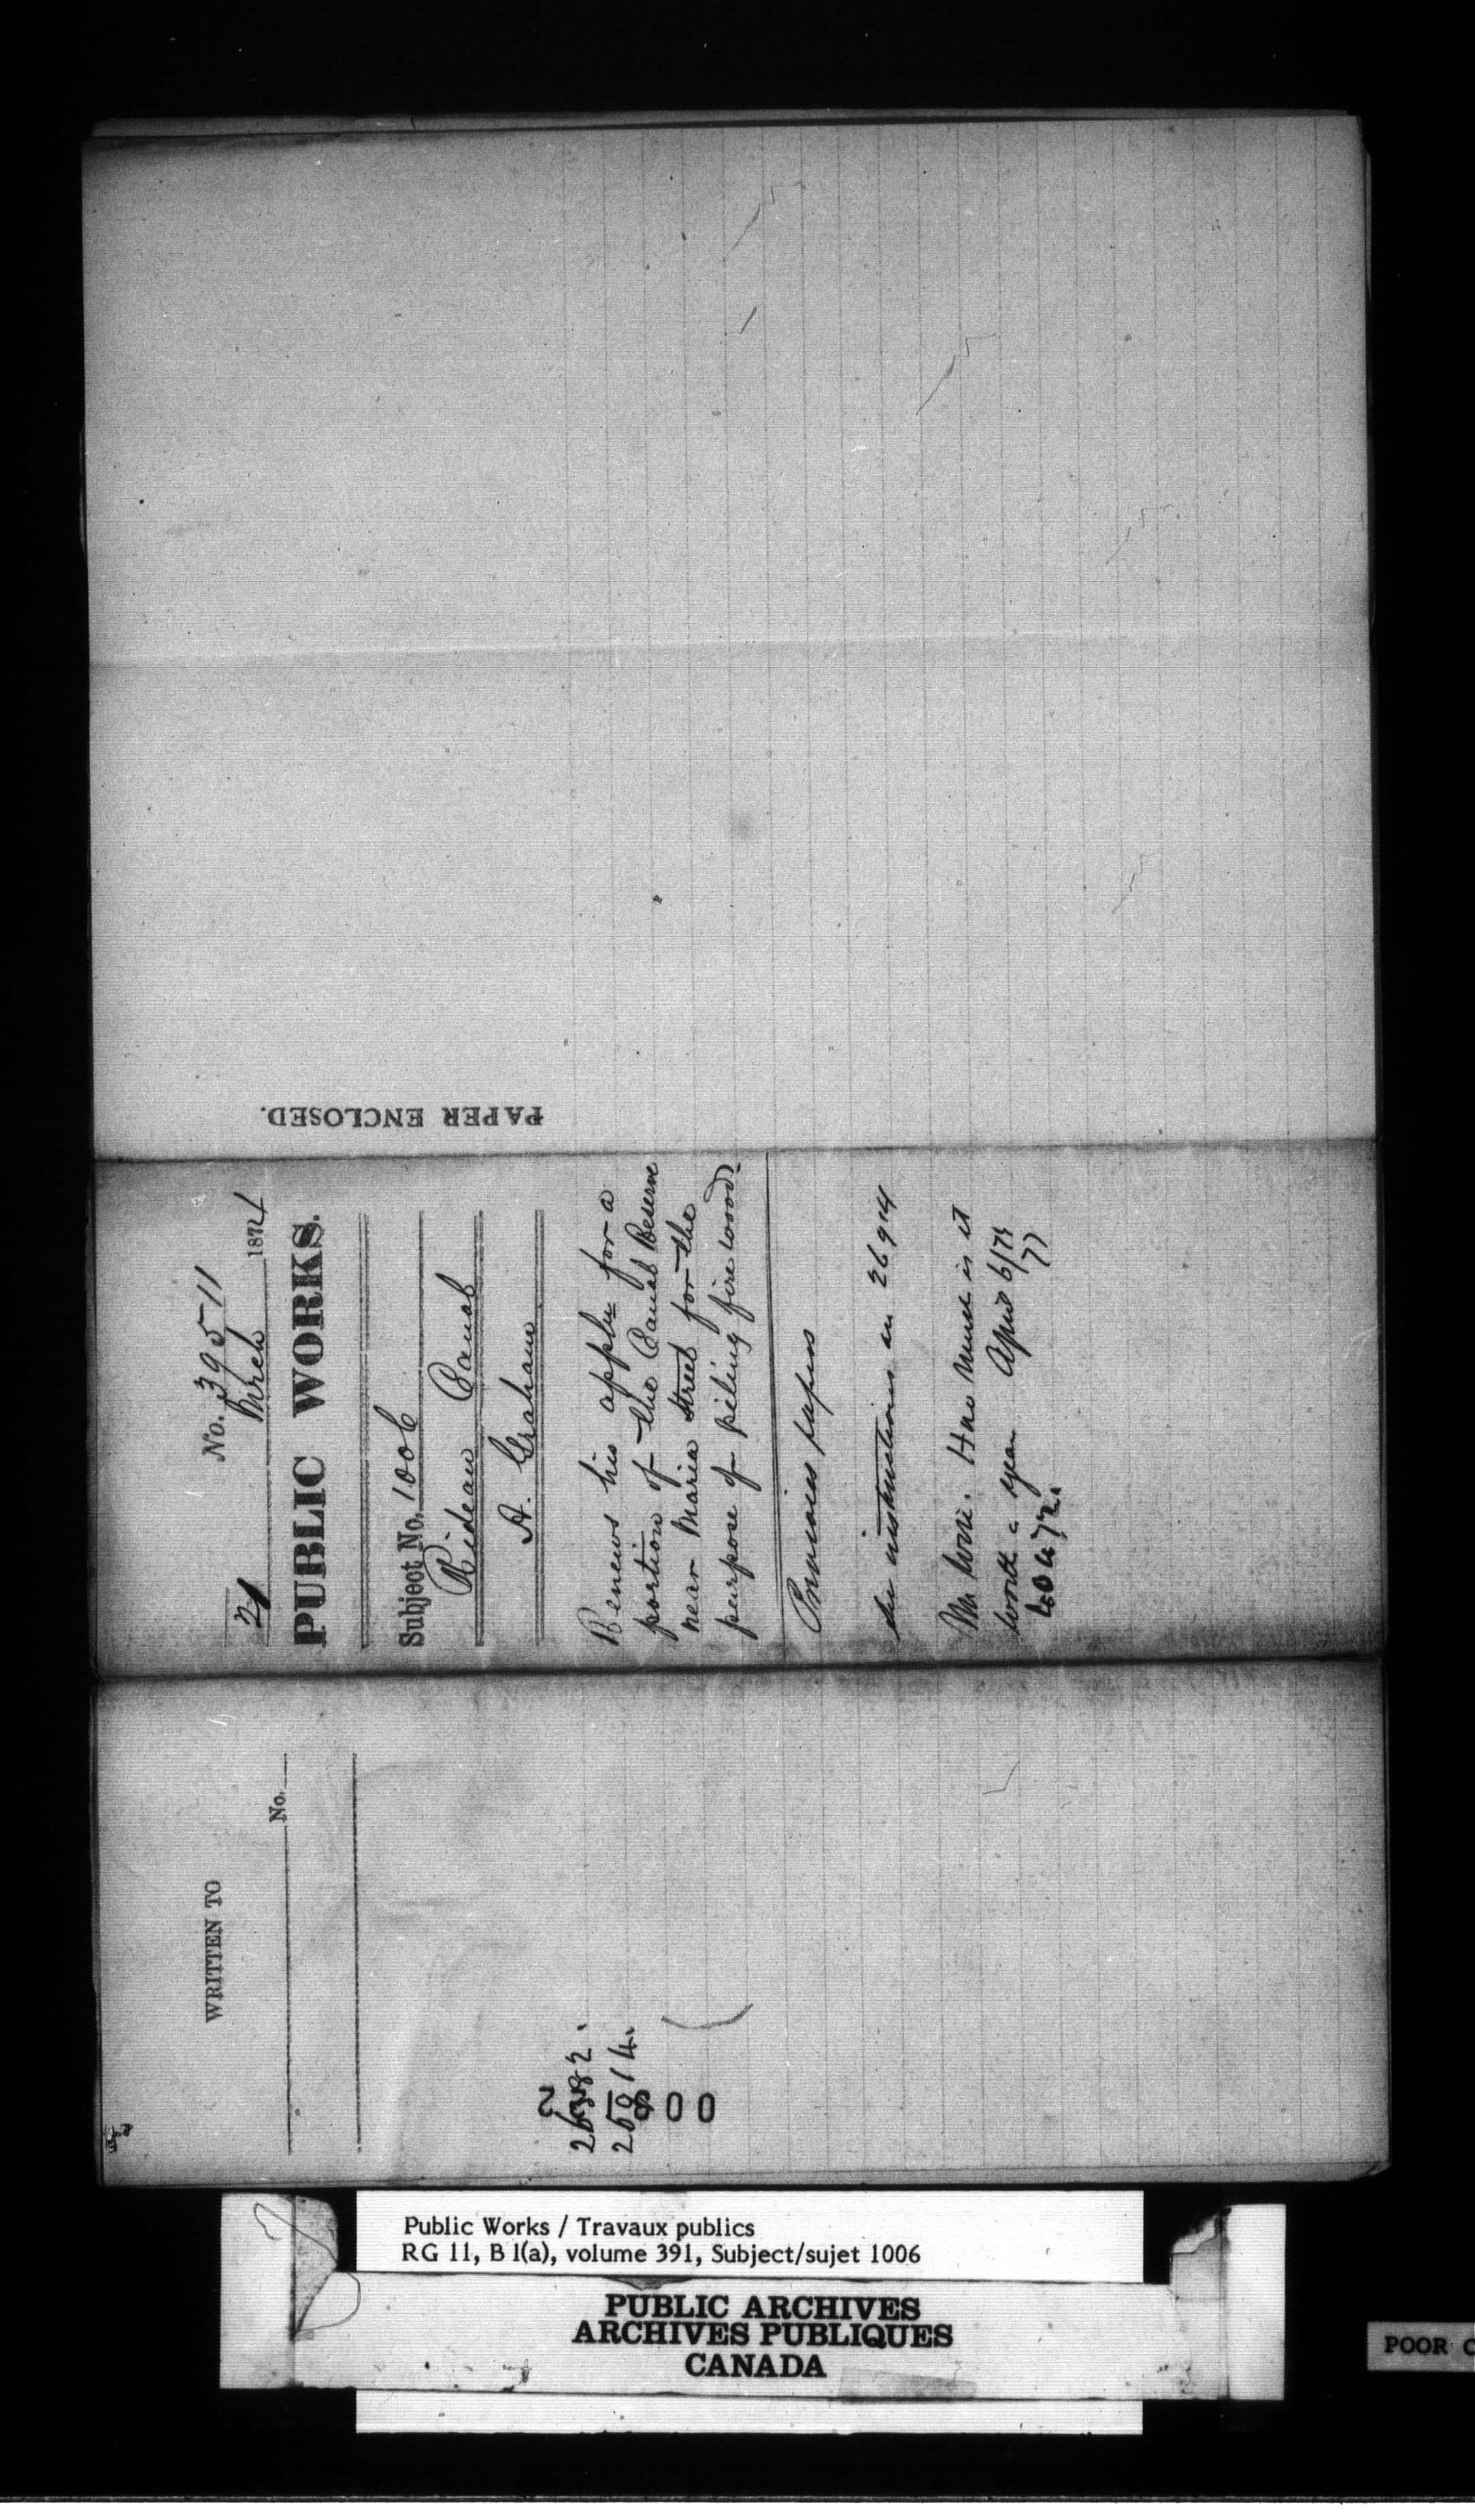 No. 39511
21 March 1874
PUBLIC WORKS.
Subject No. 1006
Rideau Canal
A. Graham
Renews his appln for a
portion of the Canal Reserve
near Maria Street for the
purpose of piling fire wood.
Previous papers
See instructions on 26914
Mr Wise. How much is it
worth a year April 6/74
PAPER ENCLOSED.
WRITTEN TO
No.
26382.
26914.
Public Works / Travaux publics
RG 11, B 1(a), volume 391, Subject/sujet 1006
PUBLIC ARCHIVES
ARCHIVES PUBLIQUES
CANADA
POOR